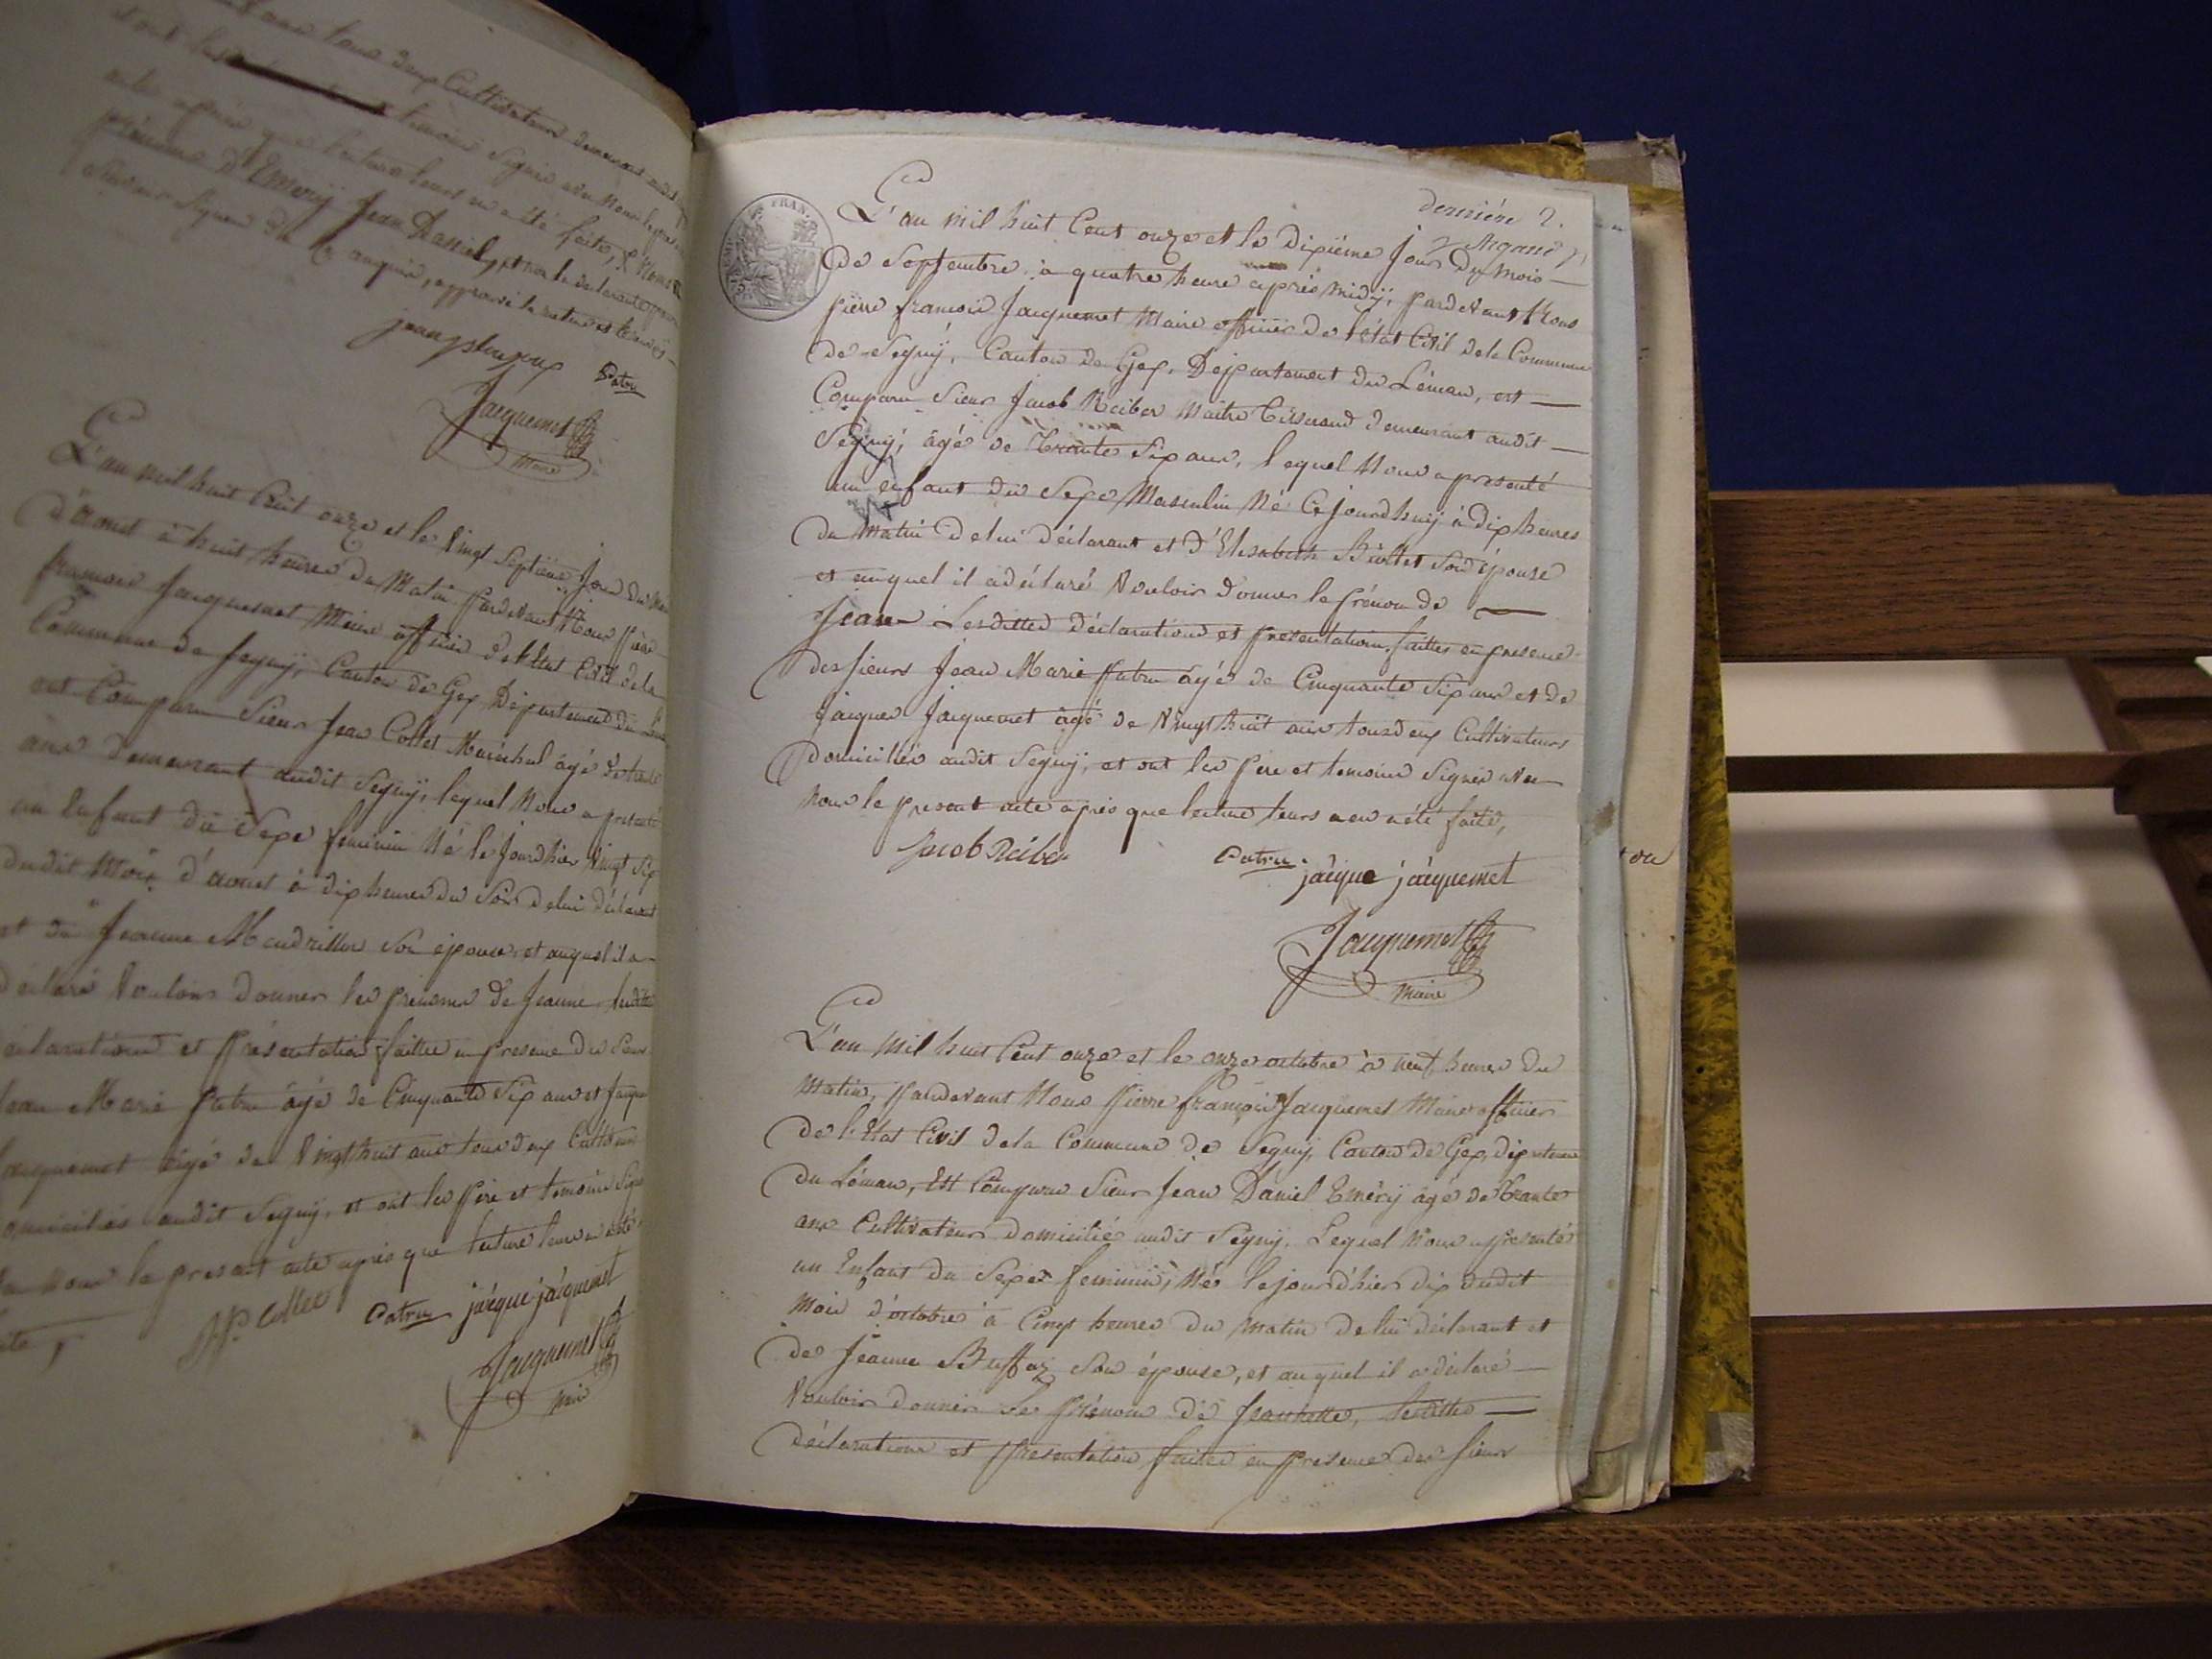 tous deux Cultivateurs demeurant audit
témoins Signés avec nous le présent
acte après que lecture leurs en a été faite,
d'Emery Jean Daniel, et non le declarant pour ne
Savoir Signer de ce enquis, approuvé la rature
Patru
Jacquemet
Maire
L'an mil huit Cent onze et le vingt Septième Jour du Mois
d'Aoust à huit heures du Matin Pardevant Nous pierre
francois Jacquemet Maire officier de l'Etat Civil dela
Commune de Segnÿ, Canton de Gex Département du Lém
est Comparu Sieur Jean Collet Maréchal âgé de trente
ans Demeurant audit Segnÿ, lequel Nous a présenté
un Enfant du Sexe feminin Né le Jourd'hier Vingt Six
dudit Mois d'aoust à dix heures du Soir de lui déclarant
et de Jeanne Mendrillon Son épouse, et auquel il a
déclaré Vouloir donner les prenoms de Jeanne lesdittes
déclarations et présentation faittes en presence des Sieurs
Jean Marie Patru âgé de Cinquante Six ans et Jacques
Jacquemet âgé de Vingt huit ans tous deux Cultivateurs
domiciliés audit Segnÿ, et ont les père et temoins Signés
avec Nous le present acte après que lecture leurs en a été
faite,
Jn. Collet
Patru jacque jacquemet
Jacquemet
Maire
derniére 2.
L'an mil huit Cent onze et le Dixième Jour du Mois
de Septembre, à quatre heure après Midÿ, pardevant Nous
pierre francois Jacquemet Maire officier de l'état Civil dela Commune
de Segnÿ, Canton de Gex, Département du Léman, est
Comparu Sieur Jacob Reiber Maitre Tisserand demeurant audit
Segnÿ, âgé de Trente Six ans, lequel Nous a presenté
un enfant du Sexe Masculin Né Cejourdhuÿ à dix heures
du Matin de lui déclarant et d'Elisabeth Bürtet Son épouse
et auquel il a déclaré Vouloir donner le prénom de
Jean Lesdittes déclarations et présentation, faittes en presence
des sieurs Jean Marie Patru âgé de Cinquante Six ans et de
Jacques Jacquemet âgé de Vingt huit ans tous deux Cultivateurs
domiciliés audit Segnÿ, et ont les père et temoins Signés avec
Nous le present acte après que lecture leurs a en a été faite,
Jacob Reiber Patru jacque jacquemet
Jacquemet
Maire
L'an Mil huit Cent onze et le onze octobre à neuf heures du
Matin, Pardevant Nous Pierre françois Jacquemet Maire officier
de l'Etat Civil dela Commune de Segnÿ, Canton de Gex, département
du Léman, Est Comparu Sieur Jean Daniel Emérÿ âgé de Trante
ans Cultivateur domicilié audit Segnÿ, Lequel Nous a présenté
un Enfant du Sexe feminin, Né lejourd'hier dix dudit
mois d'octobre à Cinq heures du Matin de lui déclarant et
de Jeanne Buffaz Son épouse, et auquel il a déclaré
Vouloir donner Les prénoms de Jeannette, lesdittes
déclarations et présentation faites en presence des sieurs